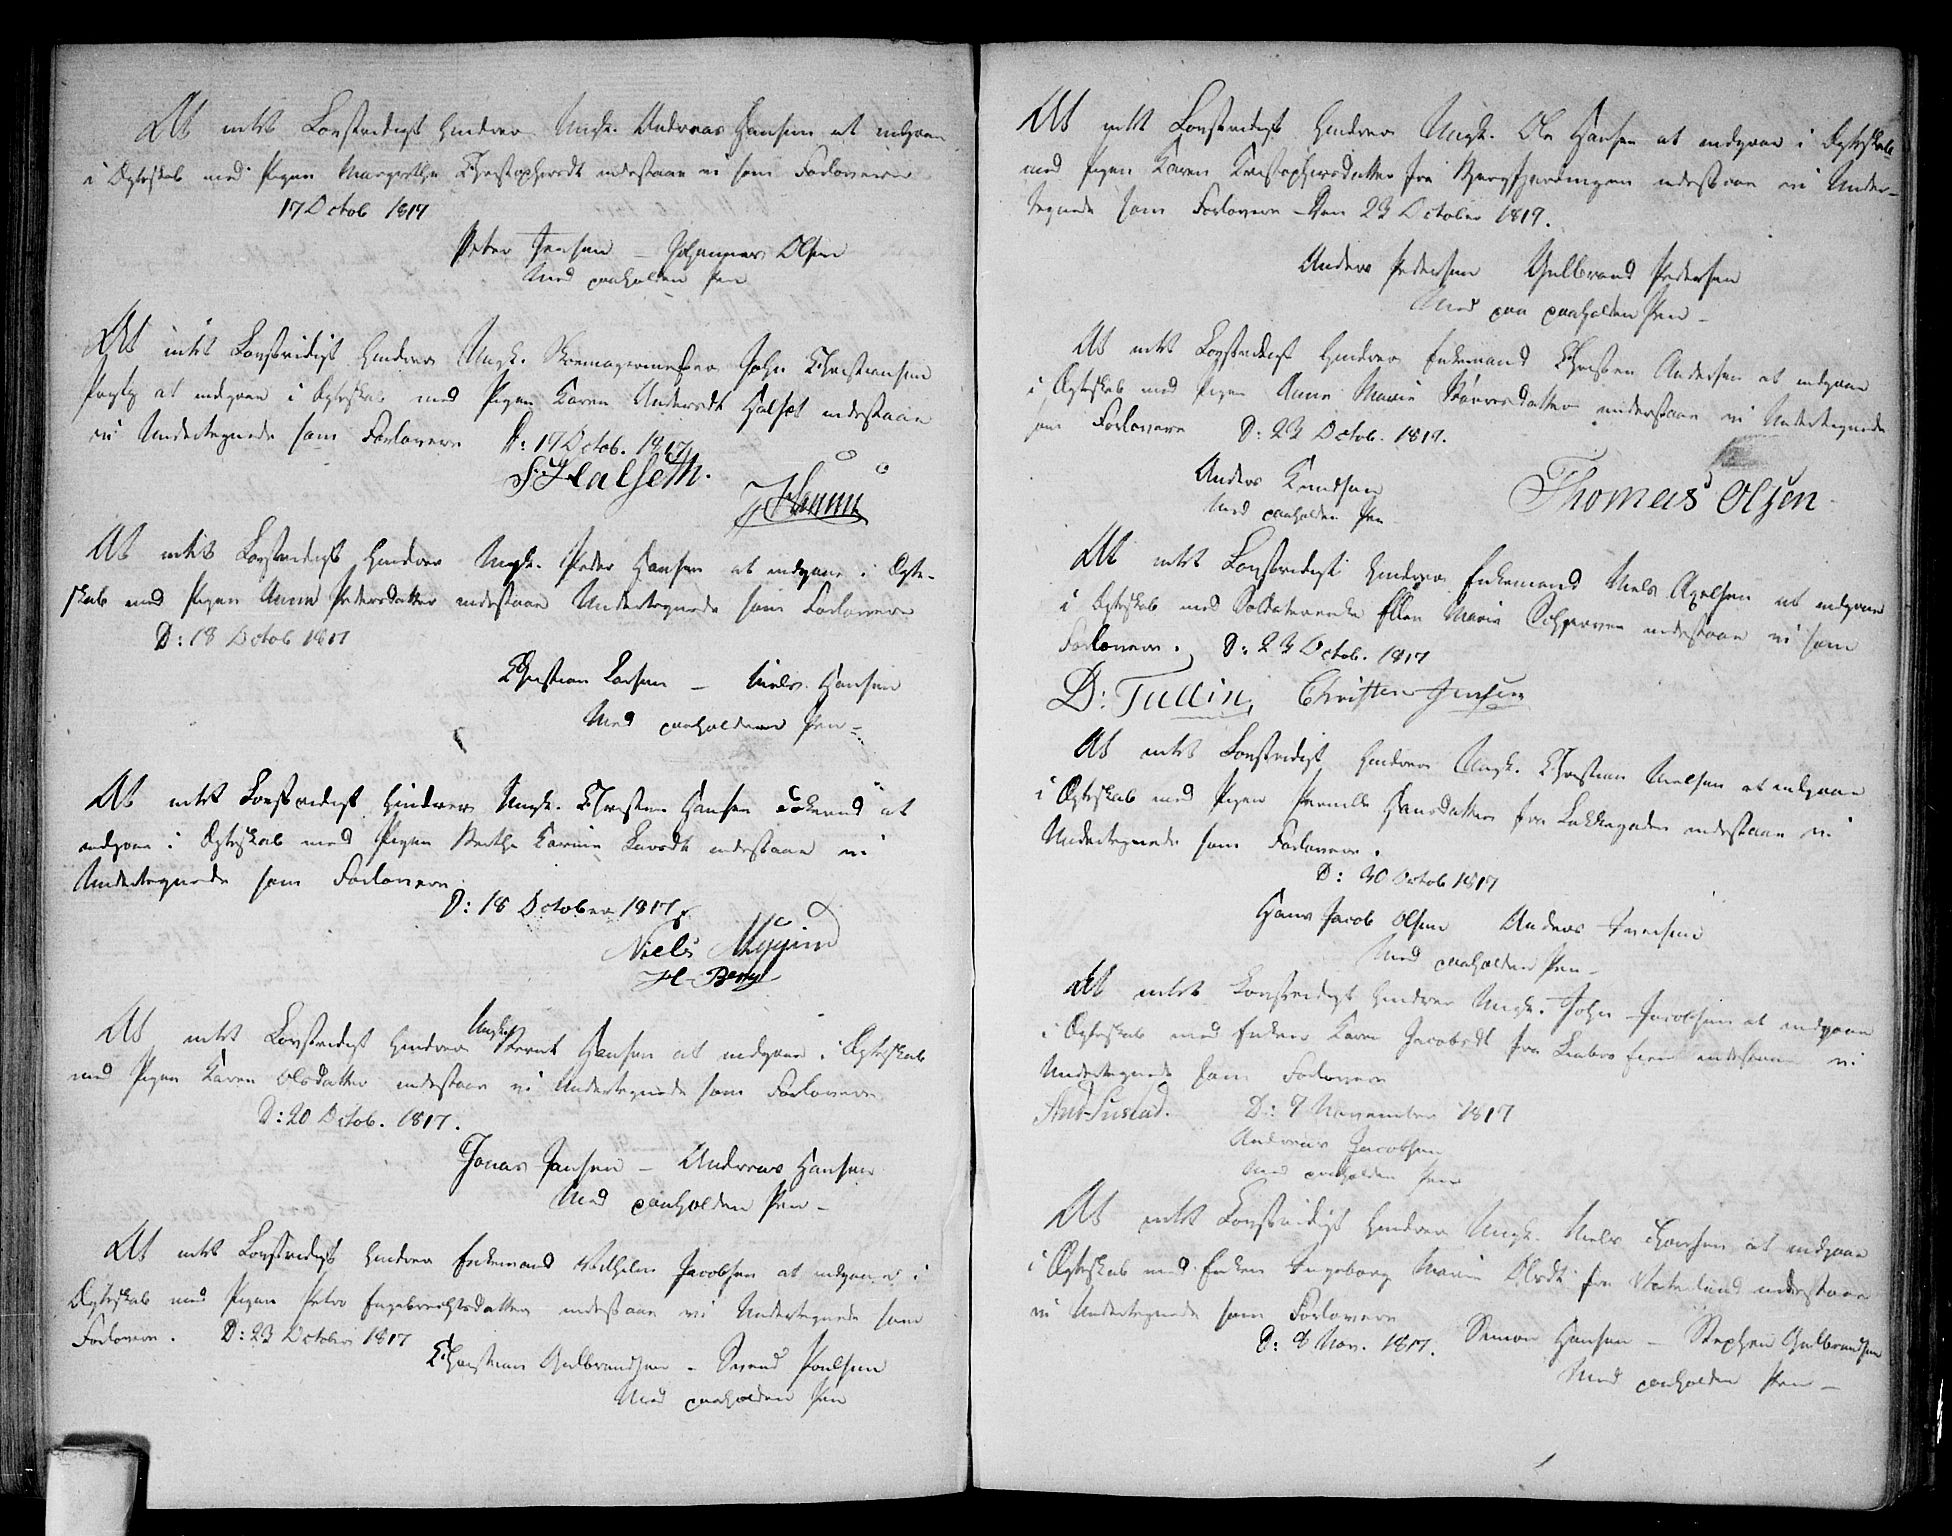 At intet Lovstridigt hindrer Ungk. Andreas Hansen at indgaae
i Ægteskab med Pigen Margrethe Christophersdt indestaae vi som Forlovere
17 Octob 1817
Peter Jensen – Johannes Olsen
Med paaholden Pen
At intet Lovstridigt hindrer Ungk. Skomagermester John Christiansen
at indgaae i Ægteskab med Pigen Karen Andersdt Halset indestaae
vi Undertegnede som Forlovere D: 17 Octob. 1817
S. Halseth.
At intet Lovstridigt hindrer Ungk. Peder Hansen at indgaae i Ægte-
skab med Pigen Anne Pedersdatter indestaae Undertegnede som Forlovere
D: 18 Octob 1817
Christian Larsen – Niels Hansen
Med paaholden Pen –
At intet Lovstridigt hindrer Ungk. Christen Hansen at
indgaae i Ægteskab med Pigen Berthe Karine Larsdt indestaae vi
Undertegnede som Forlovere
D: 18 October 1817
Niels
H. Berg
At intet Lovstridigt hindrer Ungk. Bernt Hansen at indgaae i Ægteskab
med Pigen Karen Olsdatter indestaae vi Undertegnede som Forlovere
D: 20 Octob. 1817.
Jonas Jansen – Andreas Hansen
Med paaholden Pen –
At intet Lovstridigt hindrer Enkemand Vilhelm Jacobsen at indgaae i
Ægteskab med Pigen Petro Engebrechtsdatter indestaae vi Undertegnede som
Forlovere. D: 23 October 1817
Christian Gulbrandsen – Svend Poulsen
Med paaholden Pen
At intet Lovstridigt hindrer Ungk. Ole Hansen at indgaae i Ægteskab
med Pigen Karen Kristophersdatter fra indestaae vi Under-
tegnede som Forlovere – Den 23 October 1817.
Anders Pedersen Gulbrand Pedersen
Med paa paaholden Pen –
At intet Lovstridigt hindrer Enkemand Christen Andersen at indgaae
i Ægteskab med Pigen Anne Marie indestaae vi Undertegnede
som Forlovere D: 23 Octob. 1817.
Anders Knudsen
Med paaholden Pen
Thomas Olsen
At intet Lovstridigt hindrer Enkemand Niels Axelsen at indgaae
i Ægteskab med Soldaterenke Ellen Marie indestaae vi som
Forlovere. D: 23 Octob. 1817
D: Tullin, Christen Jensen
At intet Lovstridigt hindrer Ungk. Christian Nielsen at indgaae
i Ægteskab med Pigen Pernille Hansdatter fra Lakkegaden indestaae vi
Undertegnede som Forlovere.
D: 30 Octob 1817
Hans Jacob Olsen Anders Iversen
Med paaholden Pen –
At intet Lovstridigt hindrer Ungk. John Jacobsen at indgaae
i Ægteskab med Enken Karen Jacobsdt fra indestaae vi
Undertegnede som Forlovere
D: 7 November 1817
Andreas Jacobsen
Med paaholden Pen
At intet Lovstridigt hindrer Ungk. Niels Hansen at indgaae
i Ægteskab med Enken Ingeborg Marie Olsdt fra Vaterland indestaae
vi Undertegnede som Forlovere
D: 8 Nov. 1817. Simon Hansen – Stephen Gulbrandsen
Med paaholden Pen –